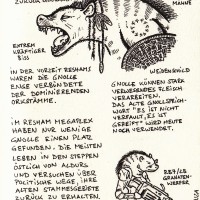 MÄHNE
EXTREM
KRÄFTIGER
BISS
WEIDENSCHILD
IN DER VORZEIT RESHAMS
WAREN DIE GNOLLE
ENGE VERBÜNDETE
DER DOMINIERENDEN
ORKSTÄMME.
GNOLLE KÖNNEN STARK
VERWESENDES FLEISCH
VERARBEITEN.
DAS ALTE GNOLLSPRICH-
WORT "ES IST NICHT
VERFAULT, ES IST
GEREIFT" WIRD HEUTE
NOCH VERWENDET.
IM RESHAM MEGAPLEX
HABEN NUR WENIGE
GNOLLE EINEN PLATZ
GEFUNDEN. DIE MEISTEN
LEBEN IN DEN STEPPEN
ÖSTLICH VON ALDURS
UND VERSUCHEN ÜBER
POLITISCHE WEGE, IHRE
ALTEN STAMMESGEBIETE
ZURÜCK ZU ERHALTEN.
GRANATEN-
WERFER